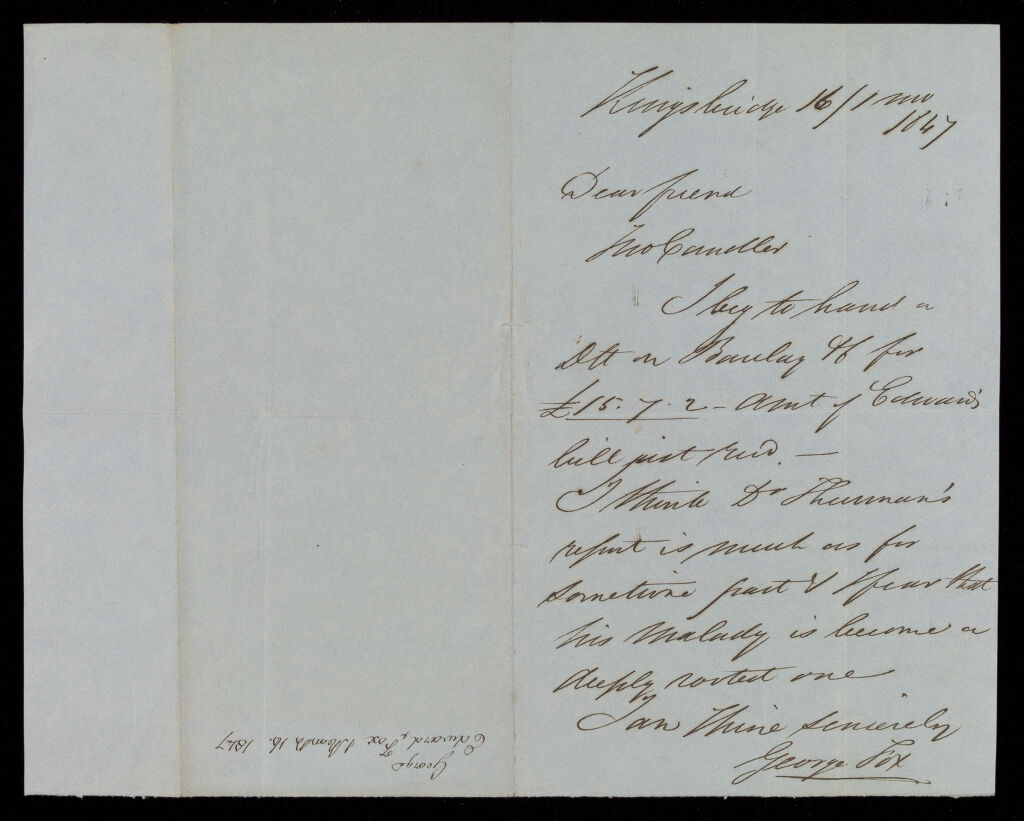 Kingsbridge 16/1 mo
1847
Dear friend
Jno Candler
I beg to hand a
Dft on Barclay & Co for
£15.7.2 - Amt of Edward's
bill just recd. —
I think Dr Thurnam's
report is much as for
sometime past & I fear that
his malady is become a
deeply rooted one
I am thine sincerely
George Fox
George
Edward Fox 1 Month 16. 1847